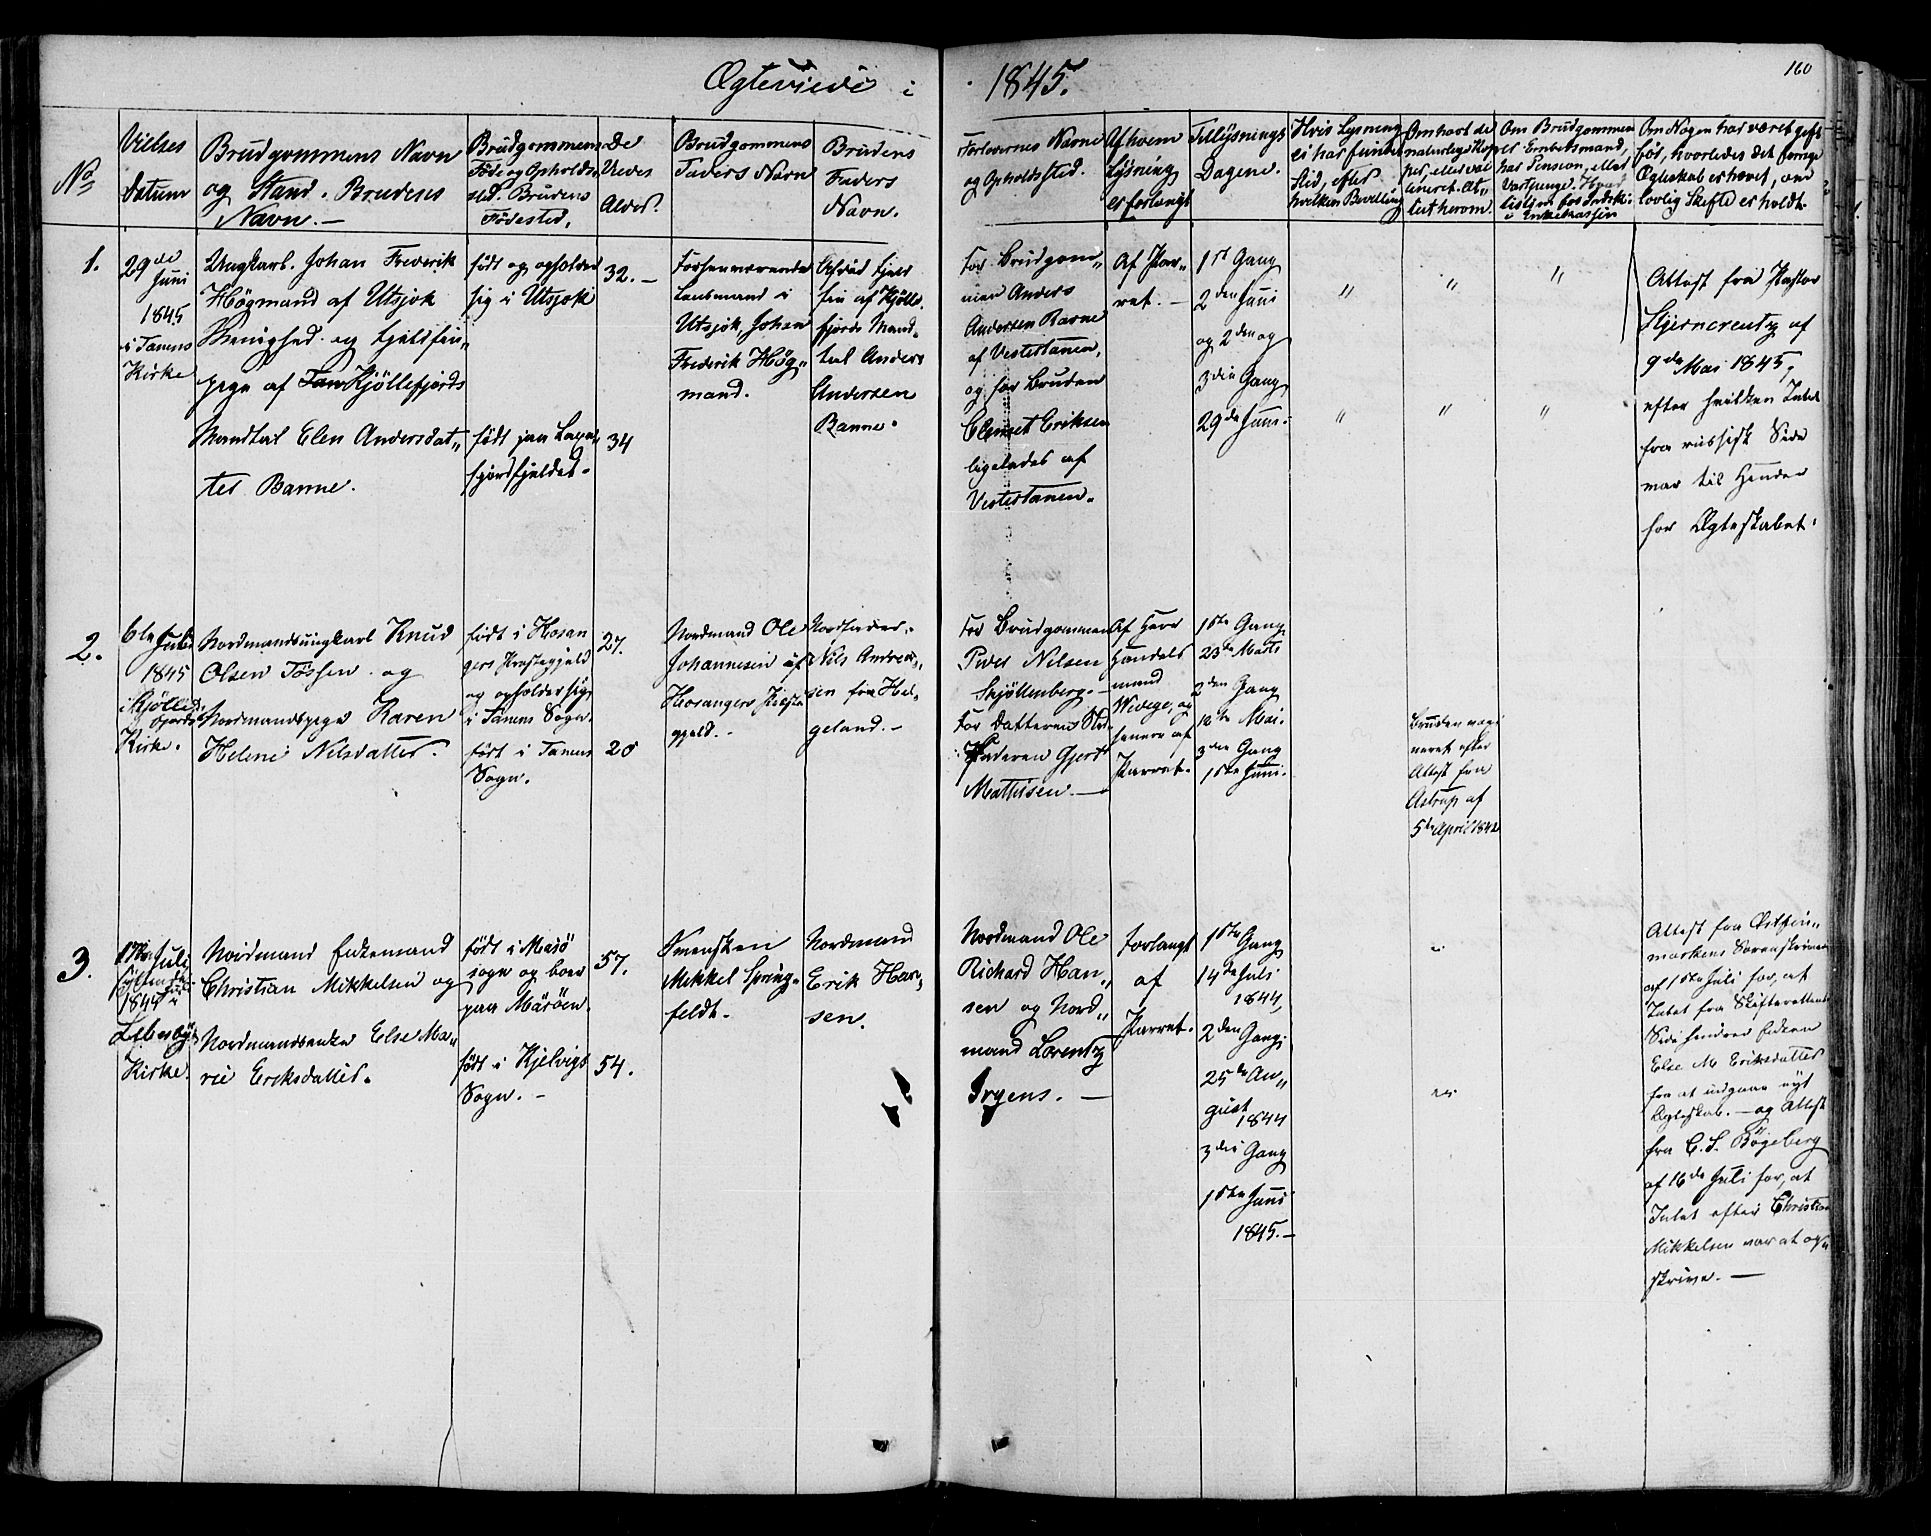 Ægteviede i 1845.
160
No
Vielses
Datum
Brudgommens Navn
og Stand. Brudens
Navn.
Brudgommens
Føde og Opholds
sted. Brudens
Fødested.
De
Vies
Alder.
Brudgommens
Faders Navn
Brudens
Faders
Navn.
Forlovernes Navne
og Opholdssted.
Af hvem
Lysning
er forlangt
Tillysnings
Dagene.
Hvis Lysning
ei har fundet
Sted, efter
hvilken Bevilling
Om havt de
naturlige Kop
per, eller vac
cineret. At„
test herom.
Om Brudgommen
er Embedsmand,
har Pension, eller
Vartpenge.
i Enkekassen
Om Nogen har været gift
før, hvorledes det forrige
Ægteskab er hævet, om
lovlig Skifte er holdt.
1.
29de
Juni
1845
i Tanens
Kirke
Ungkarl. Johan Frederik
Högmand af Utsjok
Menighed og fjeldfin„
pige af Kjöllefjords
Mandtal Elen Andersdat„
ter Banne.
født og opholder
sig i Utsjok
født paa Laxe
fjordfjeldet.
32.
34
Forhenværende
Lensmand i
Utsjok, Johan
Frederik Høg„
mand.
Afdød fjeld
fin af Kjölle
fjords Mand„
tal Anders
Andersen
Banne.
For Brudgom„
men Anders
Andersen Banne
af Vestertanen,
og for Bruden
Clemet Eriksen
ligeledes af
Vestertanen.
Af Par„
ret.
1st Gang
2den Juni
og 2den og
3die Gang
29de Juni.
"
"
"
"
"
"
Attest fra Pastor
Stjerncreutz af
9de Mai 1845,
efter hvilken Intet
fra russisk Side
var til Hinder
for Ægteskabet.
2.
6te Juli
1845
i Kjölle
fjords
Kirke.
Nordmandsungkarl Knud
Olsen Tössen og
Nordmandspige Karen
Helene Nilsdatter.
født i Hosan
gers Præstegjeld
og opholder sig
i Tanens Sogn.
født i Tanens
Sogn.
27.
20
Nordmand Ole
Johannesen af
Hosangers Præste
gjeld.
Nils Andrea„
sen fra Hel„
geland.
For Brudgommen
Peder Nilsen
Skjöttenberg.
For Datteren Sted
faderen Gjert
Mathisen.
Af Herr
Handels
mand
Wedege, og
senere af
Parret.
1ste Gang
23de Marts
2den Gang
12te Mai.
3die Gang
1ste Juni.
Bruden vac
cineret efter
Attest fra
Astrup af
5te April 1842
3.
17de Juli
1845 i
Lebesby
Kirke.
Nordmand Enkemand
Christian Mikkelsen og
Nordmandsenke Else Ma„
rie Eriksdatter.
født i Masö
sogn og boer
paa Måröen.
født i Kjelvigs
Sogn.
57.
54.
Svensken
Mikkel Spring„
feldt.
Nordmand
Erik Han„
sen.
Nordmand Ole
Richard Han„
sen og Nord„
mand Lorentz
Irgens.
Forlangt
af
Parret.
1ste Gang
14de Juli
1844,
2den Gang
25de Au„
gust
1844
3die Gang
1ste Juni
1845.
Attest fra Østfin„
markens Sorenskriver
af 1ste Juli for, at
Intet fra Skifterettens
Side hindrer Enken
Else M Eriksdatter
fra at indgaae nyt
Ægteskab. — og Attest
fra C. S. Bögeberg
af 16de Juli for, at
Intet efter Christian
Mikkelsen var at op„
skrive.